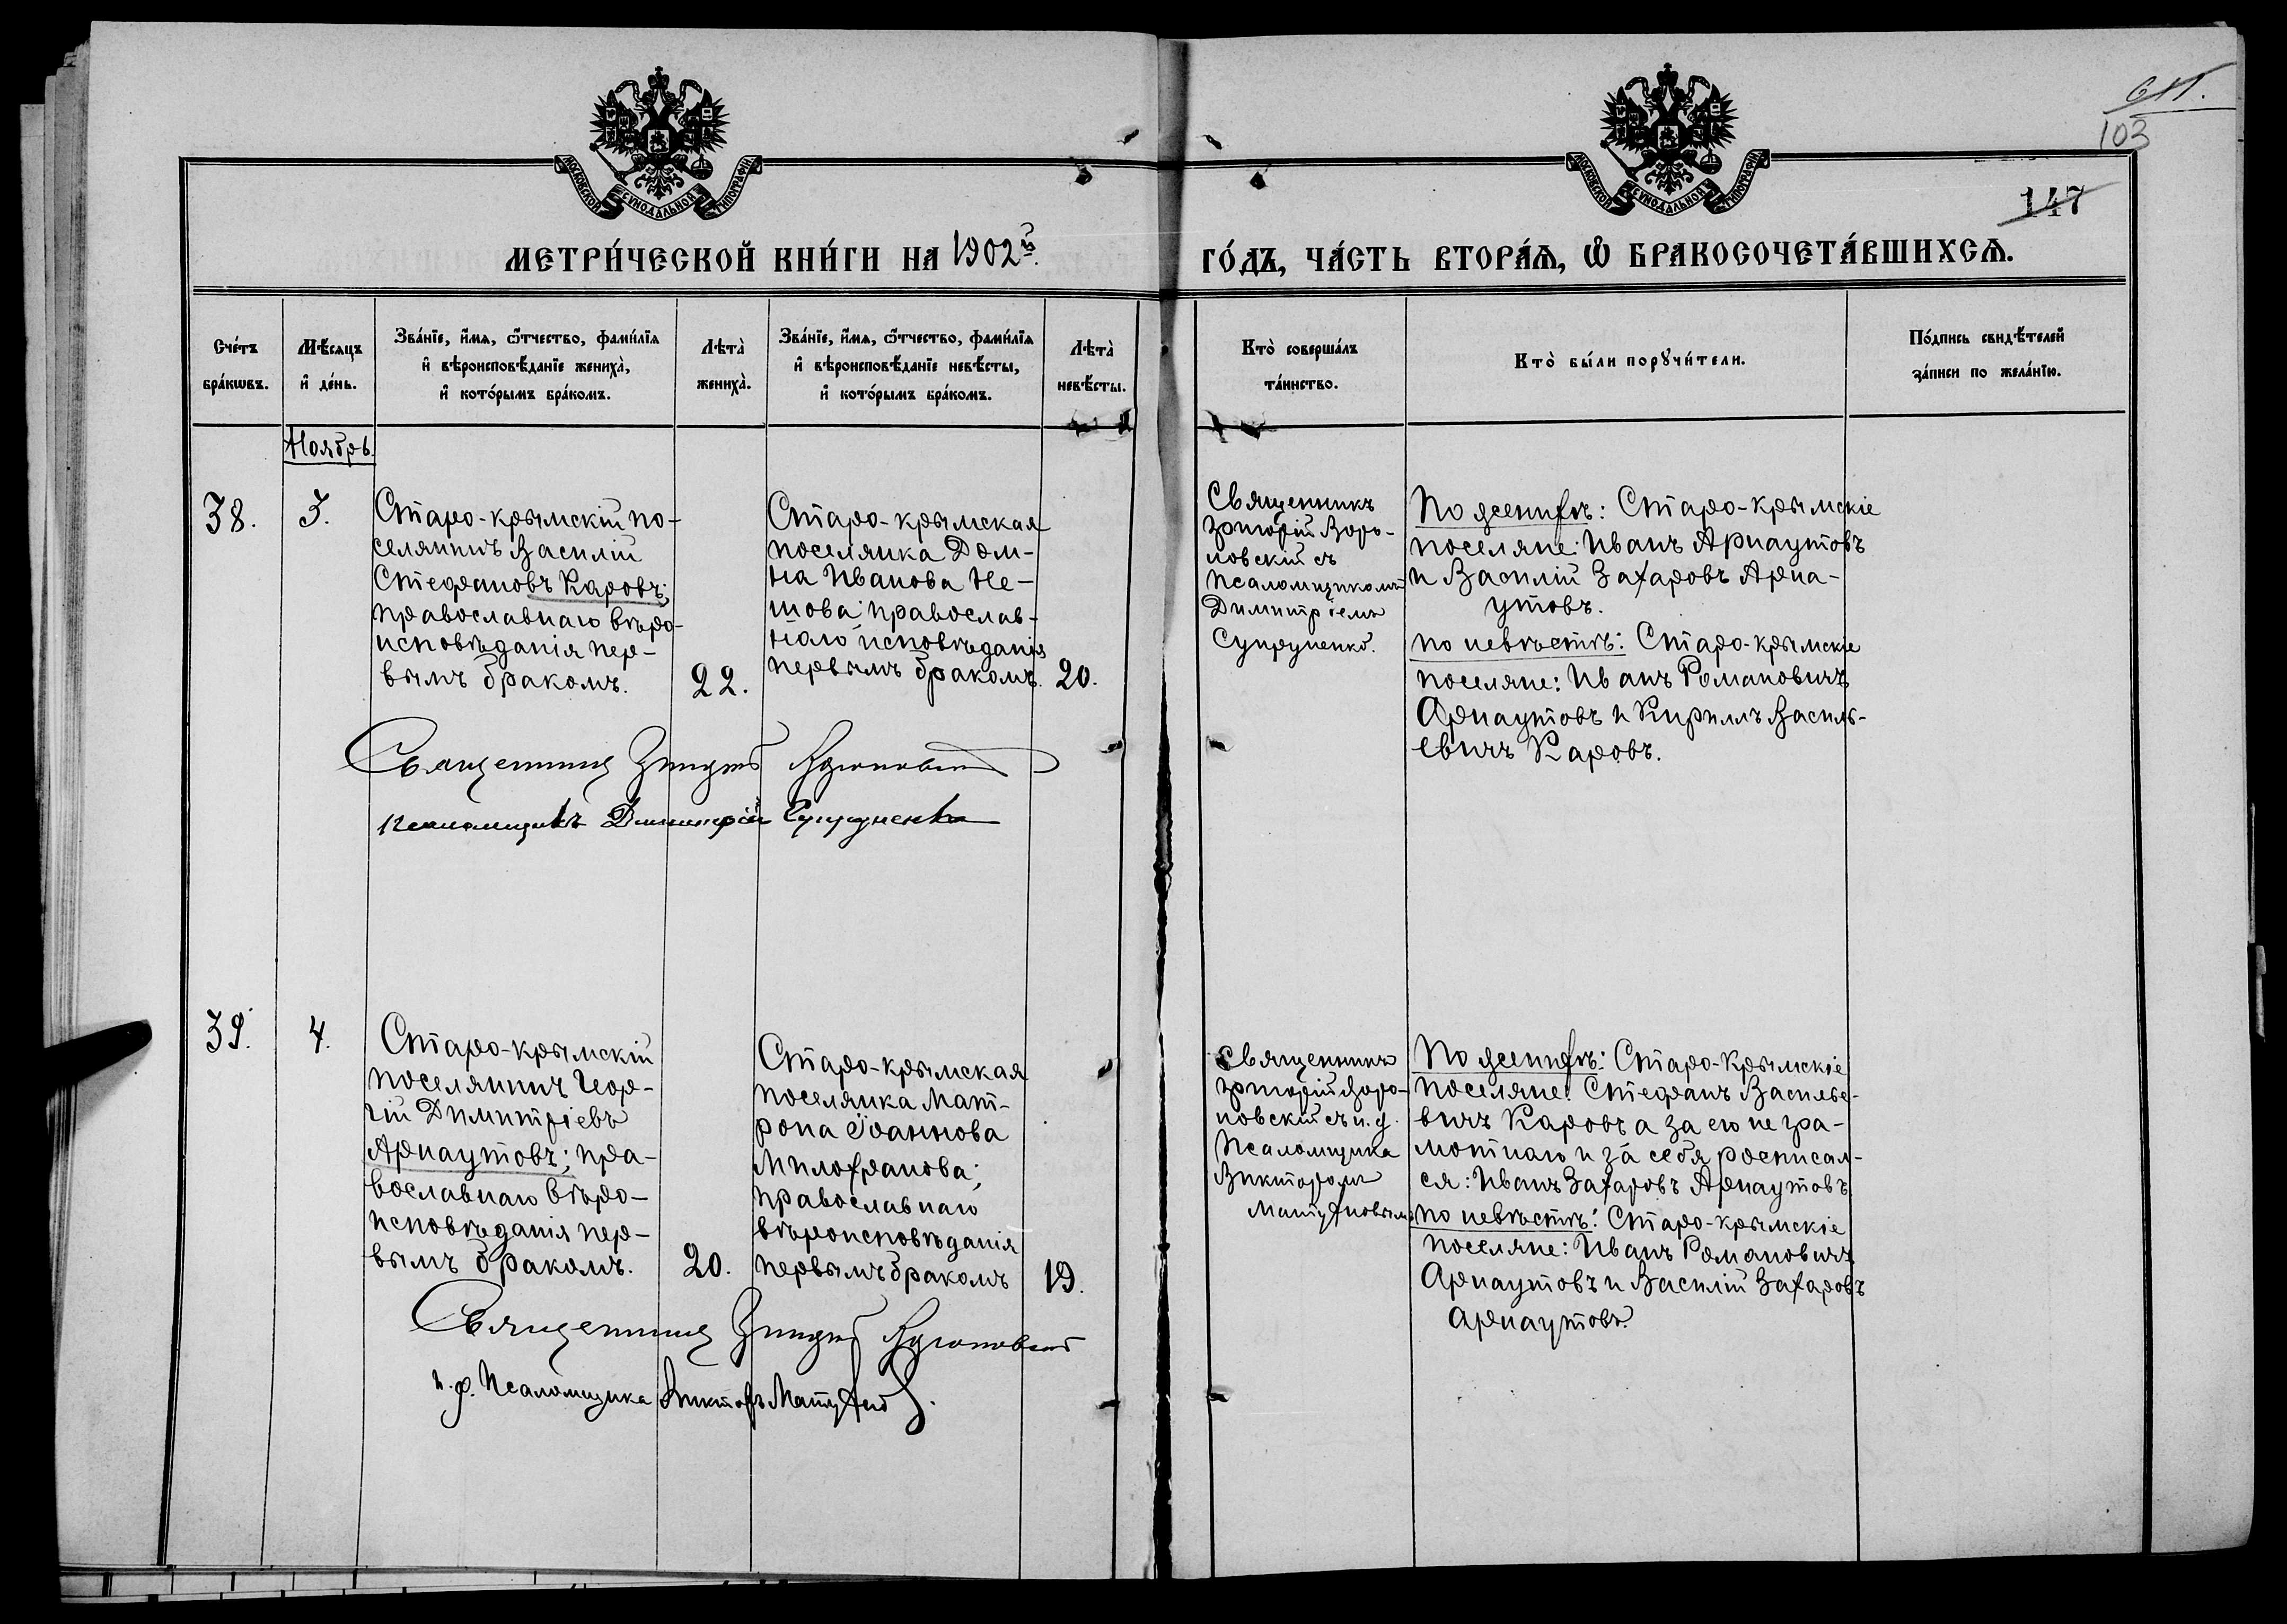 МОСКОВСКОЙ СѴНОДАЛЬНОЙ ТИПОГРАФІИ
МОСКОВСКОЙ СѴНОДАЛЬНОЙ ТИПОГРАФІИ
103
147
МЕТРИ́ЧЕСКОЙ КНИ́ГИ НА 1902й
ГО́ДЪ, ЧА́СТЬ ВТОРА́Ѧ, Ѡ҆ БРАКОСОЧЕТА́ВШИХСѦ.
Сче́тъ
бра́кѡвъ.
Мѣ́сяцъ
и҆ де́нь.
Зва́нїе, и҆́мѧ, ѻ҆́тчество, фами́лїѧ
и҆ вѣроисповѣ́данїе жениха̀,
и҆ кото́рымъ бра́комъ.
Лѣта̀
жениха̀.
Зва́нїе, и҆́мѧ, ѻ҆́тчество, фами́лїѧ
и҆ вѣроисповѣ́данїе невѣ́сты,
и҆ кото́рымъ бра́комъ.
Лѣта̀
невѣ́сты.
Кто̀ соверша́лъ
та́инство.
Кто̀ бы́ли порꙋчи́тели.
По́дпись свидѣ́телей
за́писи по жела́нїю.
Ноябрь.
38.
3.
Старо-крымскій по-
селянинъ Василій
Стефановъ Каровъ;
православнаго вѣро-
исповѣданія пер-
вымъ бракомъ.
22.
Старо-крымская
поселянка Дом-
на Иванова Не-
шова православ-
наго исповѣданія
первымъ бракомъ.
20.
Священникъ
Григорій
новскій съ
Псаломщикомъ
Димитріемъ
Супруненко.
По женихѣ: Старо-крымскіе
поселяне: Иванъ Арнаутовъ
и Василій Захаровъ Арна-
утовъ.
по невѣстѣ: Старо-крымскіе
поселяне: Иванъ Романовичъ
Арнаутовъ и Кириллъ Василь-
евичъ Каровъ.
Священникъ Григорій
Псаломщикъ Димитрій Супруненко
39.
4.
Старо-крымскій
поселянинъ Геор-
гій Димитріевъ
Арнаутовъ; пра-
вославнаго вѣро-
исповѣданія пер-
вымъ бракомъ.
20.
Старо-крымская
поселянка Мат-
рона Іоаннова
Милохранова;
православнаго
вѣроисповѣданія
первымъ бракомъ
19.
Священникъ
Григорій
новскій съ и. д.
Псаломщика
Викторомъ
По женихѣ: Старо-Крымскіе
поселяне: Стефанъ Василье-
вичъ Каровъ а за его не гра-
мотнаго и за себя росписал-
ся: Иванъ Захаровъ Арнаутовъ
по невѣстѣ: Старо-крымскіе
поселяне: Иванъ Романовичъ
Арнаутовъ и Василій Захаровъ
Арнаутовъ.
Священникъ Григорій
и. д. Псаломщика Викторъ